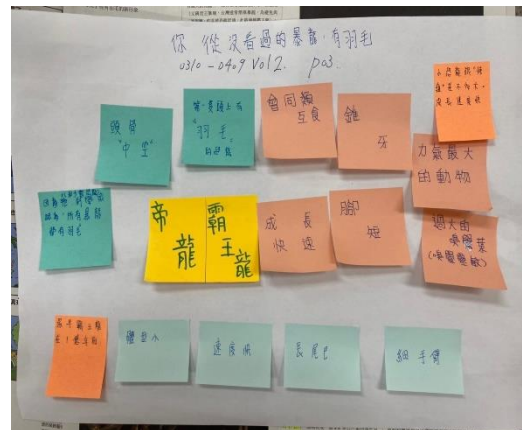 你從沒看過的暴龍,有羽毛
0310-0409 Vol2. p03.
頭骨
"中空"
第一隻證上有
"羽毛"
的恐龍
會同類
互食
錐
牙
力氣最大
的動物
帝
龍
霸
王
龍
成長
快速
腳
短
過大的
嗅覺葉
(嗅覺靈敏)
都有羽毛
體型小
速度快
長尾巴
細手臂